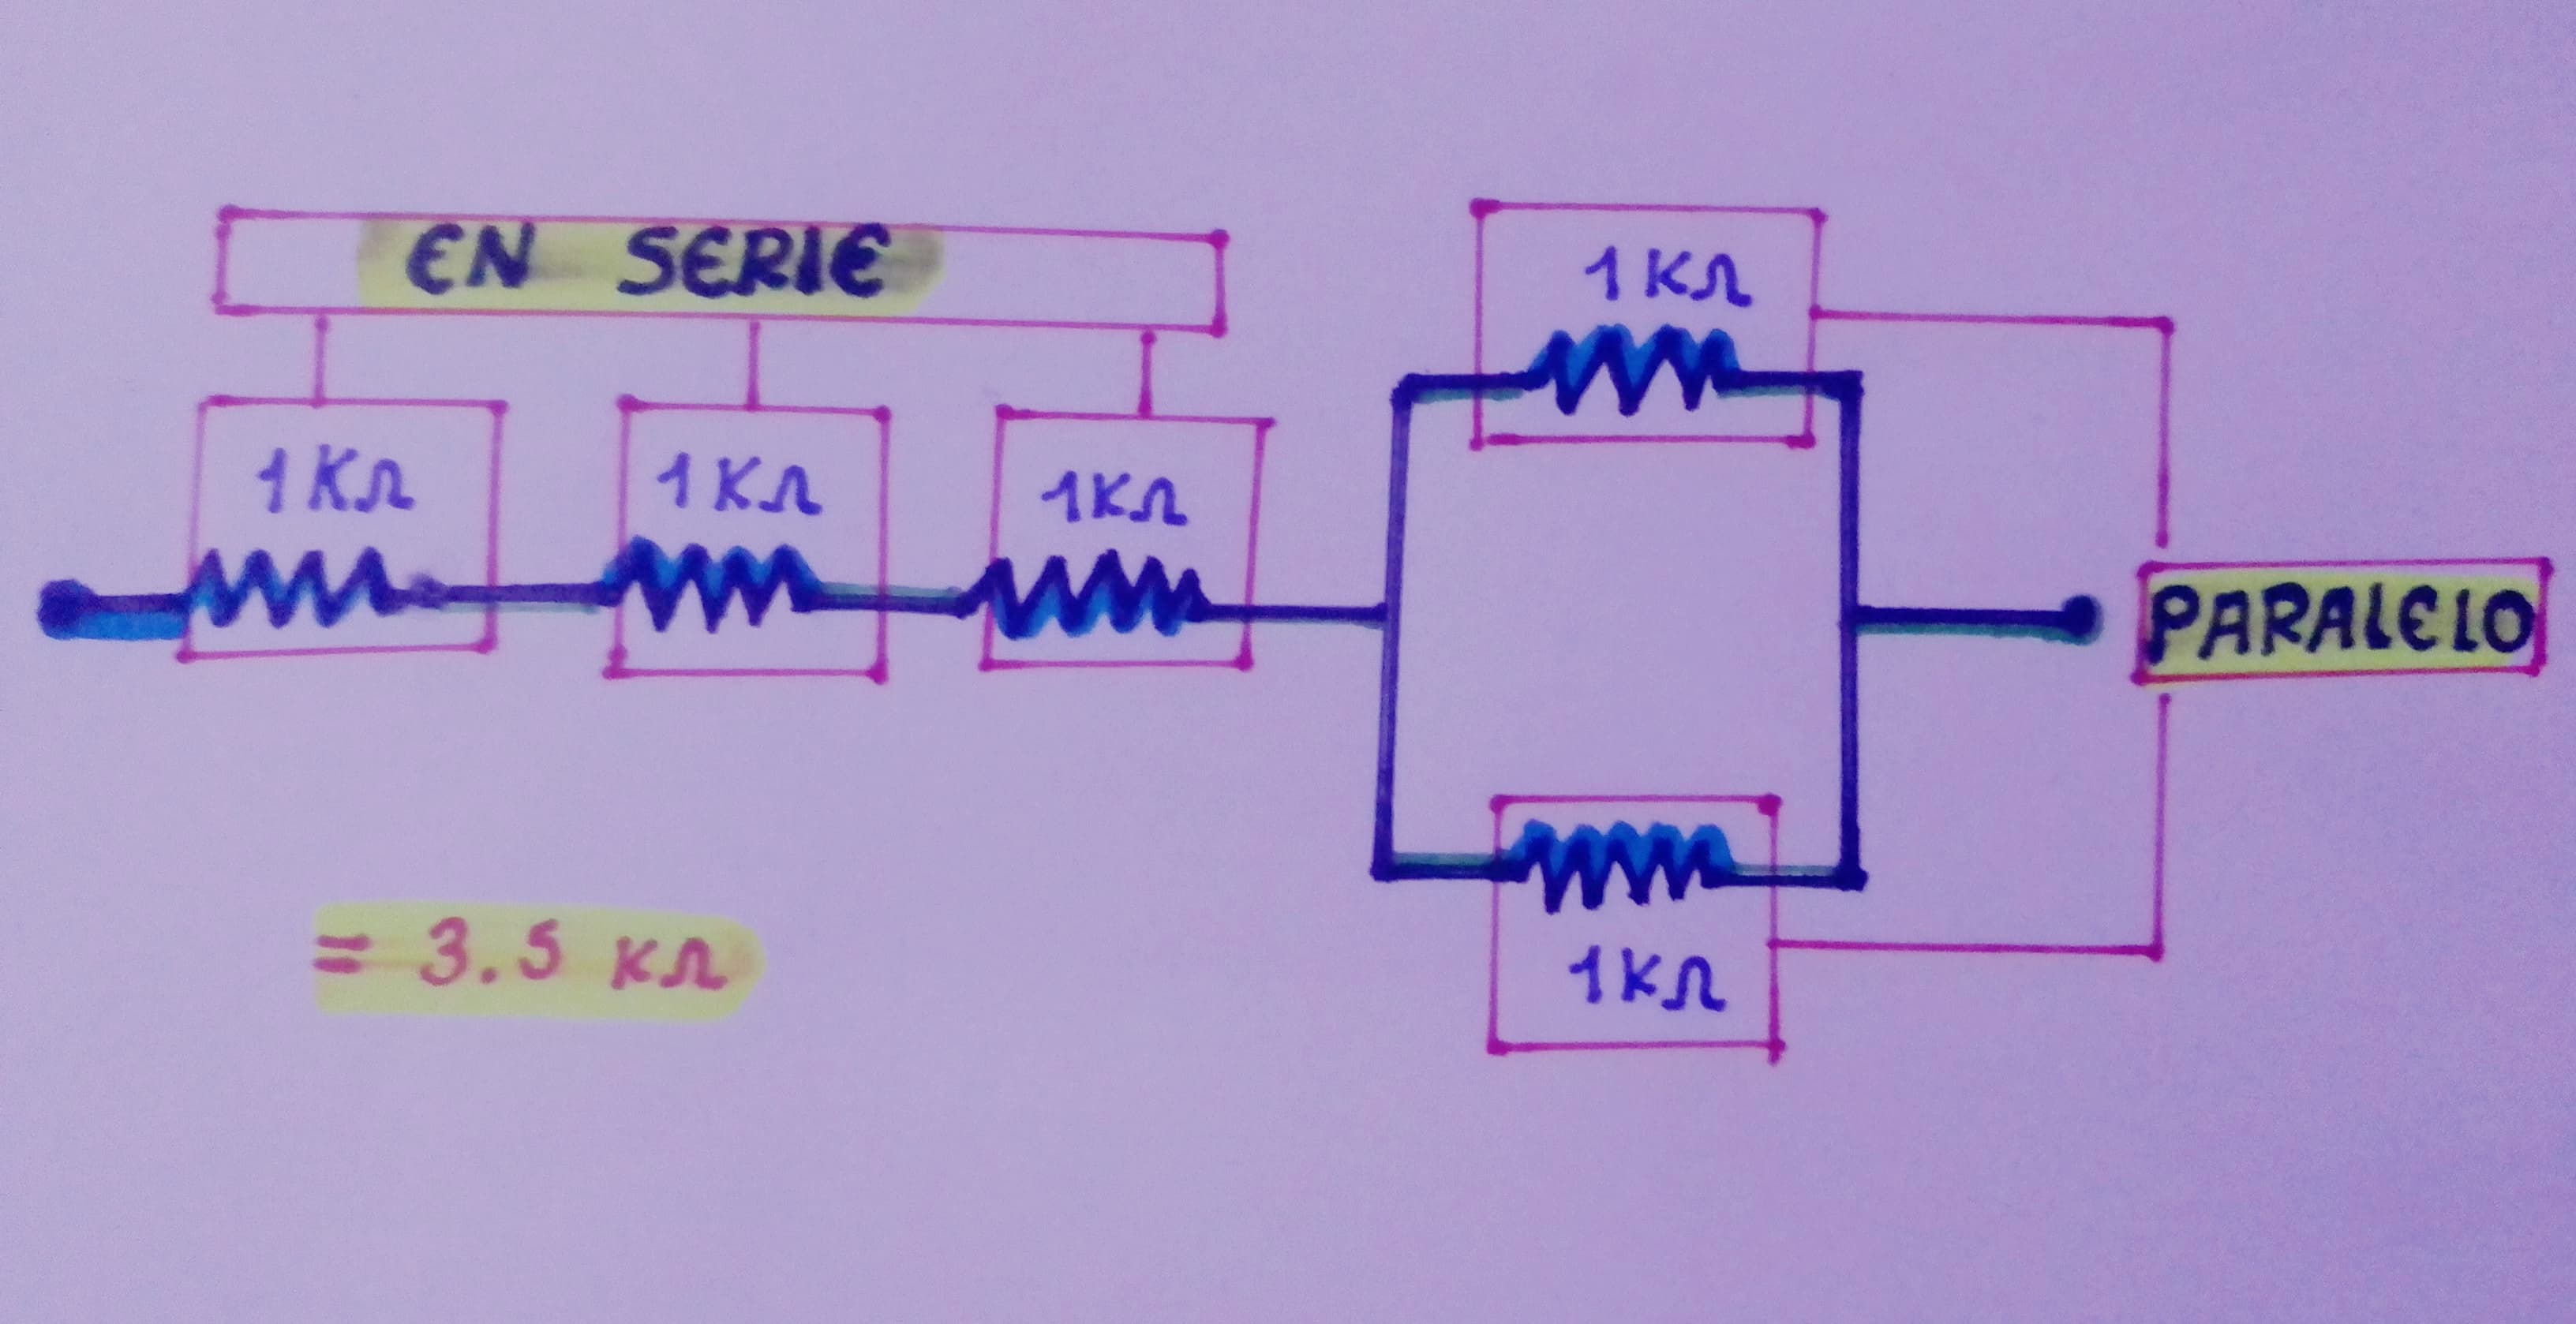 EN SERIE
1KΩ
1KΩ
1KΩ
1KΩ
PARALELO
1KΩ
= 3.5 KΩ